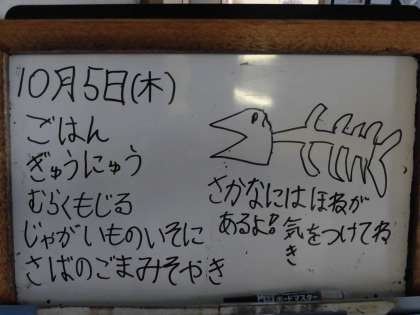 10月5日(木)
ごはん
ぎゅうにゅう
むらくもじる
じゃがいものいそに
さばのごまみそやき
さかなにはほねが
あるよ
気をつけてね
き
ボードマスター